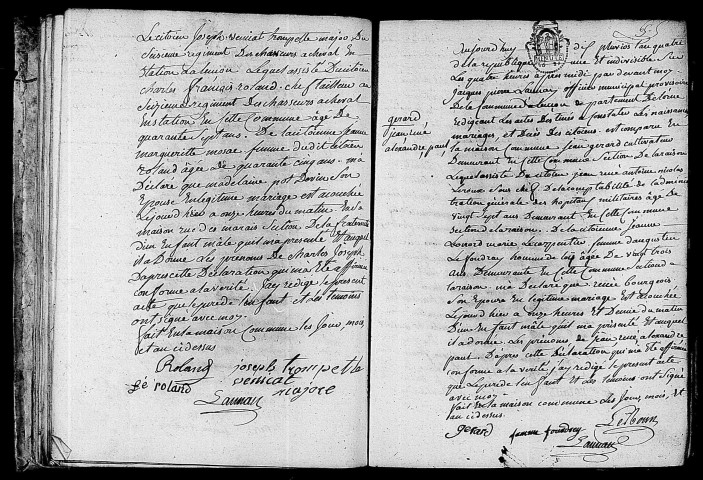 Le citoyen Joseph versicat trompette major Du
Seizieme regiment Des chasseurs acheval En
Station
Charles François roland, chef tailleur au
Seizieme regiment Des chasseurs acheval
En Station En Cette Commune âgé De
quarante Sept ans. De la citoyenne jeanne
margueritte femme Dudit citoyen
roland âgée De quarante cinq ans. ma
Déclaré que madelaine Son
Epouse En legitime mariage est acouchée
Lejourd hier a onze heures du matin En Sa
maison rue Des marais Section De la fraternité
D'un Enfant mâle quil ma presenté Et auquel
il a Donné Les prénoms De Charles Joseph
Daprès cette Déclaration qui ma Eté affirmée
conforme à la vérité. J'ay redigé le présent
acte que le pere de l'enfant et Les temoins
ont signé avec moy.
fait En la maison Commune les Jours, mois
et an cidessus
Roland joseph trompette
versicat
roland majore
Launay
Aujourd'huy dix pluviose l'an quatre
De la république une et indivisible Sur
Les quatre heures après midi par devant moy
jacques pierre Launay officier municipal provisoire
De la Commune département De
Redigeant des actes Destinés a constater Les naissances
mariages, et Décès Des citoyens. est comparu En
La maison Commune jean gerard cultivateur
Demeurant En Cette Commune Section De la raison
Lequel assisté Du citoyen jean antoine nicolas
Leroux Sous chef De la comptabilité de l'adminis
tration générale des hopitaux militaires âgé De
Vingt Sept ans Demeurant En Cette Commune
Section De la raison. De la citoyenne jeanne
Leonord marie Lecarpentier femme d'augustin
Le foudray homme de loi âgée De vingt trois
ans Demeurante En Cette Commune Section De la
raison. ma Déclaré que renee bourgeois
Son Epouse En legitime mariage est acouchée
Lejourd hier a onze heures Et Demie du matin
D'un Enfant mâle quil ma présenté Et auquel
il a donné. Les prénoms, De jean rené alexandre
paul. D'apres cette Déclaration qui ma Eté affirmée
conforme à la vérité, j'ay redigé le present acte
que Le pere de l'enfant Et Les temoins ont Signé
avec moy
fait En la maison commune Les Jours, mois, Et
an cidessus.
gerard
jean rené
alexandre paul
gerard femme foudray
Launay